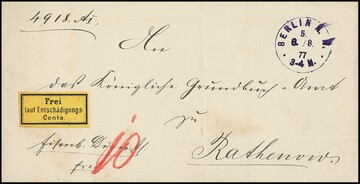 4918. Ar.
BERLIN N.W.
5.
8./8.
77
3-4 N.
An
das Königliche Grundbuch-Amt
Frei
laut Entschädigungs-
Conto.
zu
10
Rathenow.